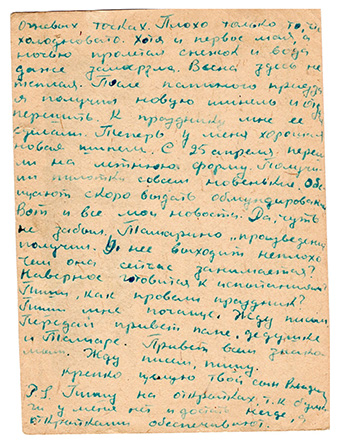 огневых точках. Плохо только то, что
холодновато. Хотя и первое мая а
ночью пролетал снежок и вода
даже замерзла. Весна здесь не
теплая. После папиного приезда
я получил новую шинель и отдал
перешить. К празднику мне ее
сделали. Теперь у меня хорошая
новая шинель. С 25 апреля переш
ли на летнюю форму. Получи
ли пилотки совсем новенькие. Обе
щают скоро выдать обмундирован
Вот и все мои новости. Да, чуть
не забыл, Тамарино „произведение
получил. У нее выходит неплохо
Чем она сейчас занимается?
Наверное готовится к испытаниям?
Пиши, как провели праздник?
Пиши мне почаще. Жду писем
Передай привет папе, дедушке
и Тамаре. Привет всем знако
мым. Жду писем, пишу.
крепко целую твой сын
P.S. Пишу на открытках, т.к. бума
ги у меня нет и достать негде, а
открытками обеспечивают.